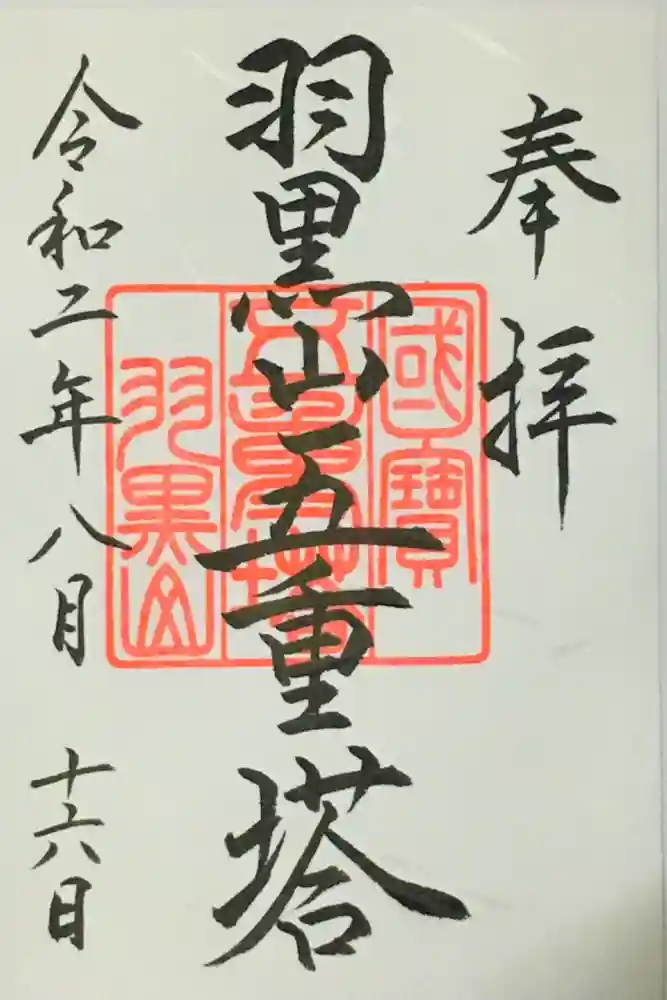 奉拝
羽黒山五重塔
令和二年八月十六日
國寶
五重塔
羽黒山